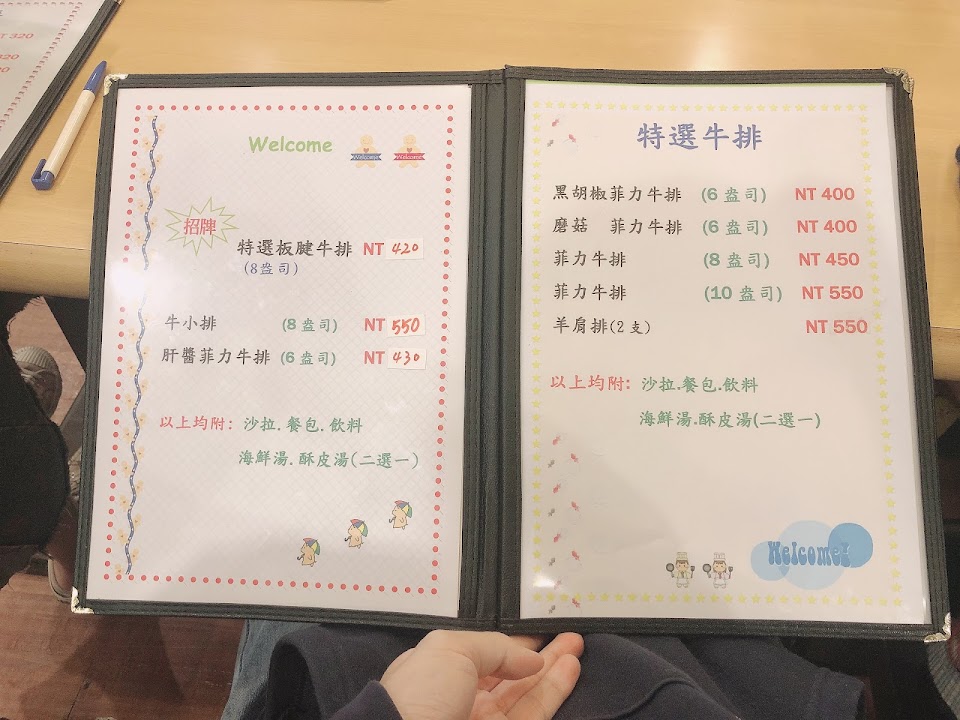 T 320
320
20
Welcome
Welcome Welcome
招牌
特選板腱牛排 NT 420
(8盎司)
牛小排 (8盎司) NT 550
肝醬菲力牛排 (6盎司) NT 430
以上均附: 沙拉.餐包.飲料
海鮮湯.酥皮湯(二選一)
特選牛排
黑胡椒菲力牛排 (6盎司) NT 400
磨菇 菲力牛排 (6盎司) NT 400
菲力牛排 (8盎司) NT 450
菲力牛排 (10盎司) NT 550
羊肩排(2支) NT 550
以上均附: 沙拉.餐包.飲料
海鮮湯.酥皮湯(二選一)
Welcome!